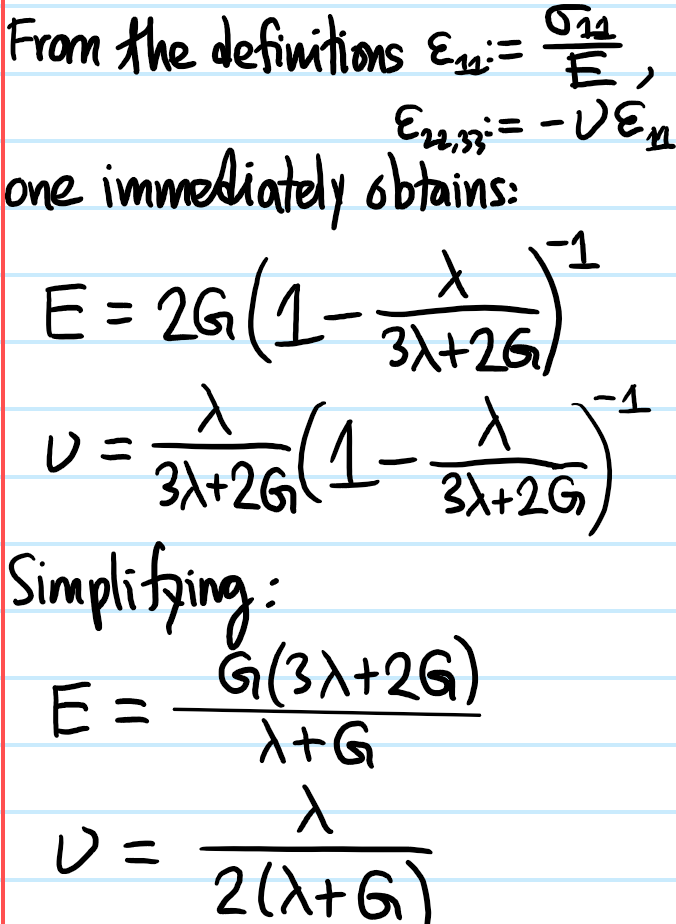 From the definitions ε₁₁ := σ₁₁/E,
ε₂₂,₃₃ := -νε₁₁
one immediately obtains:
E = 2G(1 - λ/(3λ+2G))⁻¹
ν = λ/(3λ+2G) (1 - λ/(3λ+2G))⁻¹
Simplifying:
E = G(3λ+2G)/(λ+G)
ν = λ/(2(λ+G))